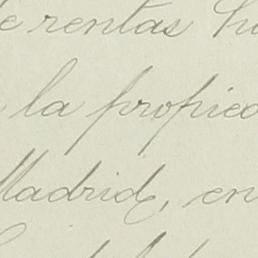 e rentas ha
la propied
Madrid, en